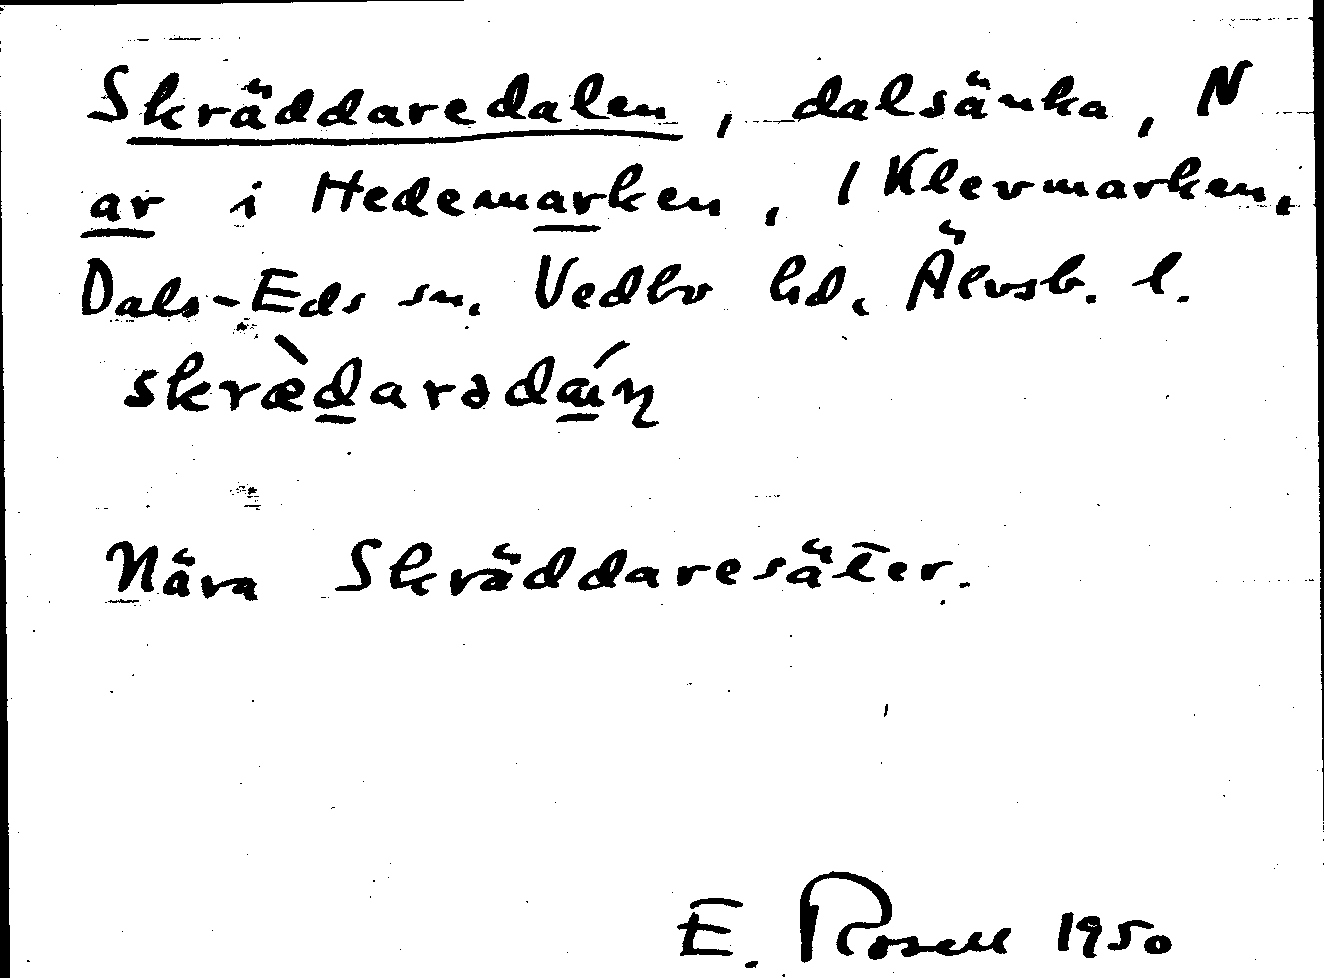 Skräddaredalen, dalsänka, N
ar i Hedemarken, 1 Klevmarken,
Dals-Eds sn. Vedbo hd. Älvsb. l.
skrædarədáiņ
Nära Skräddaresäter.
E. Rosell 1950